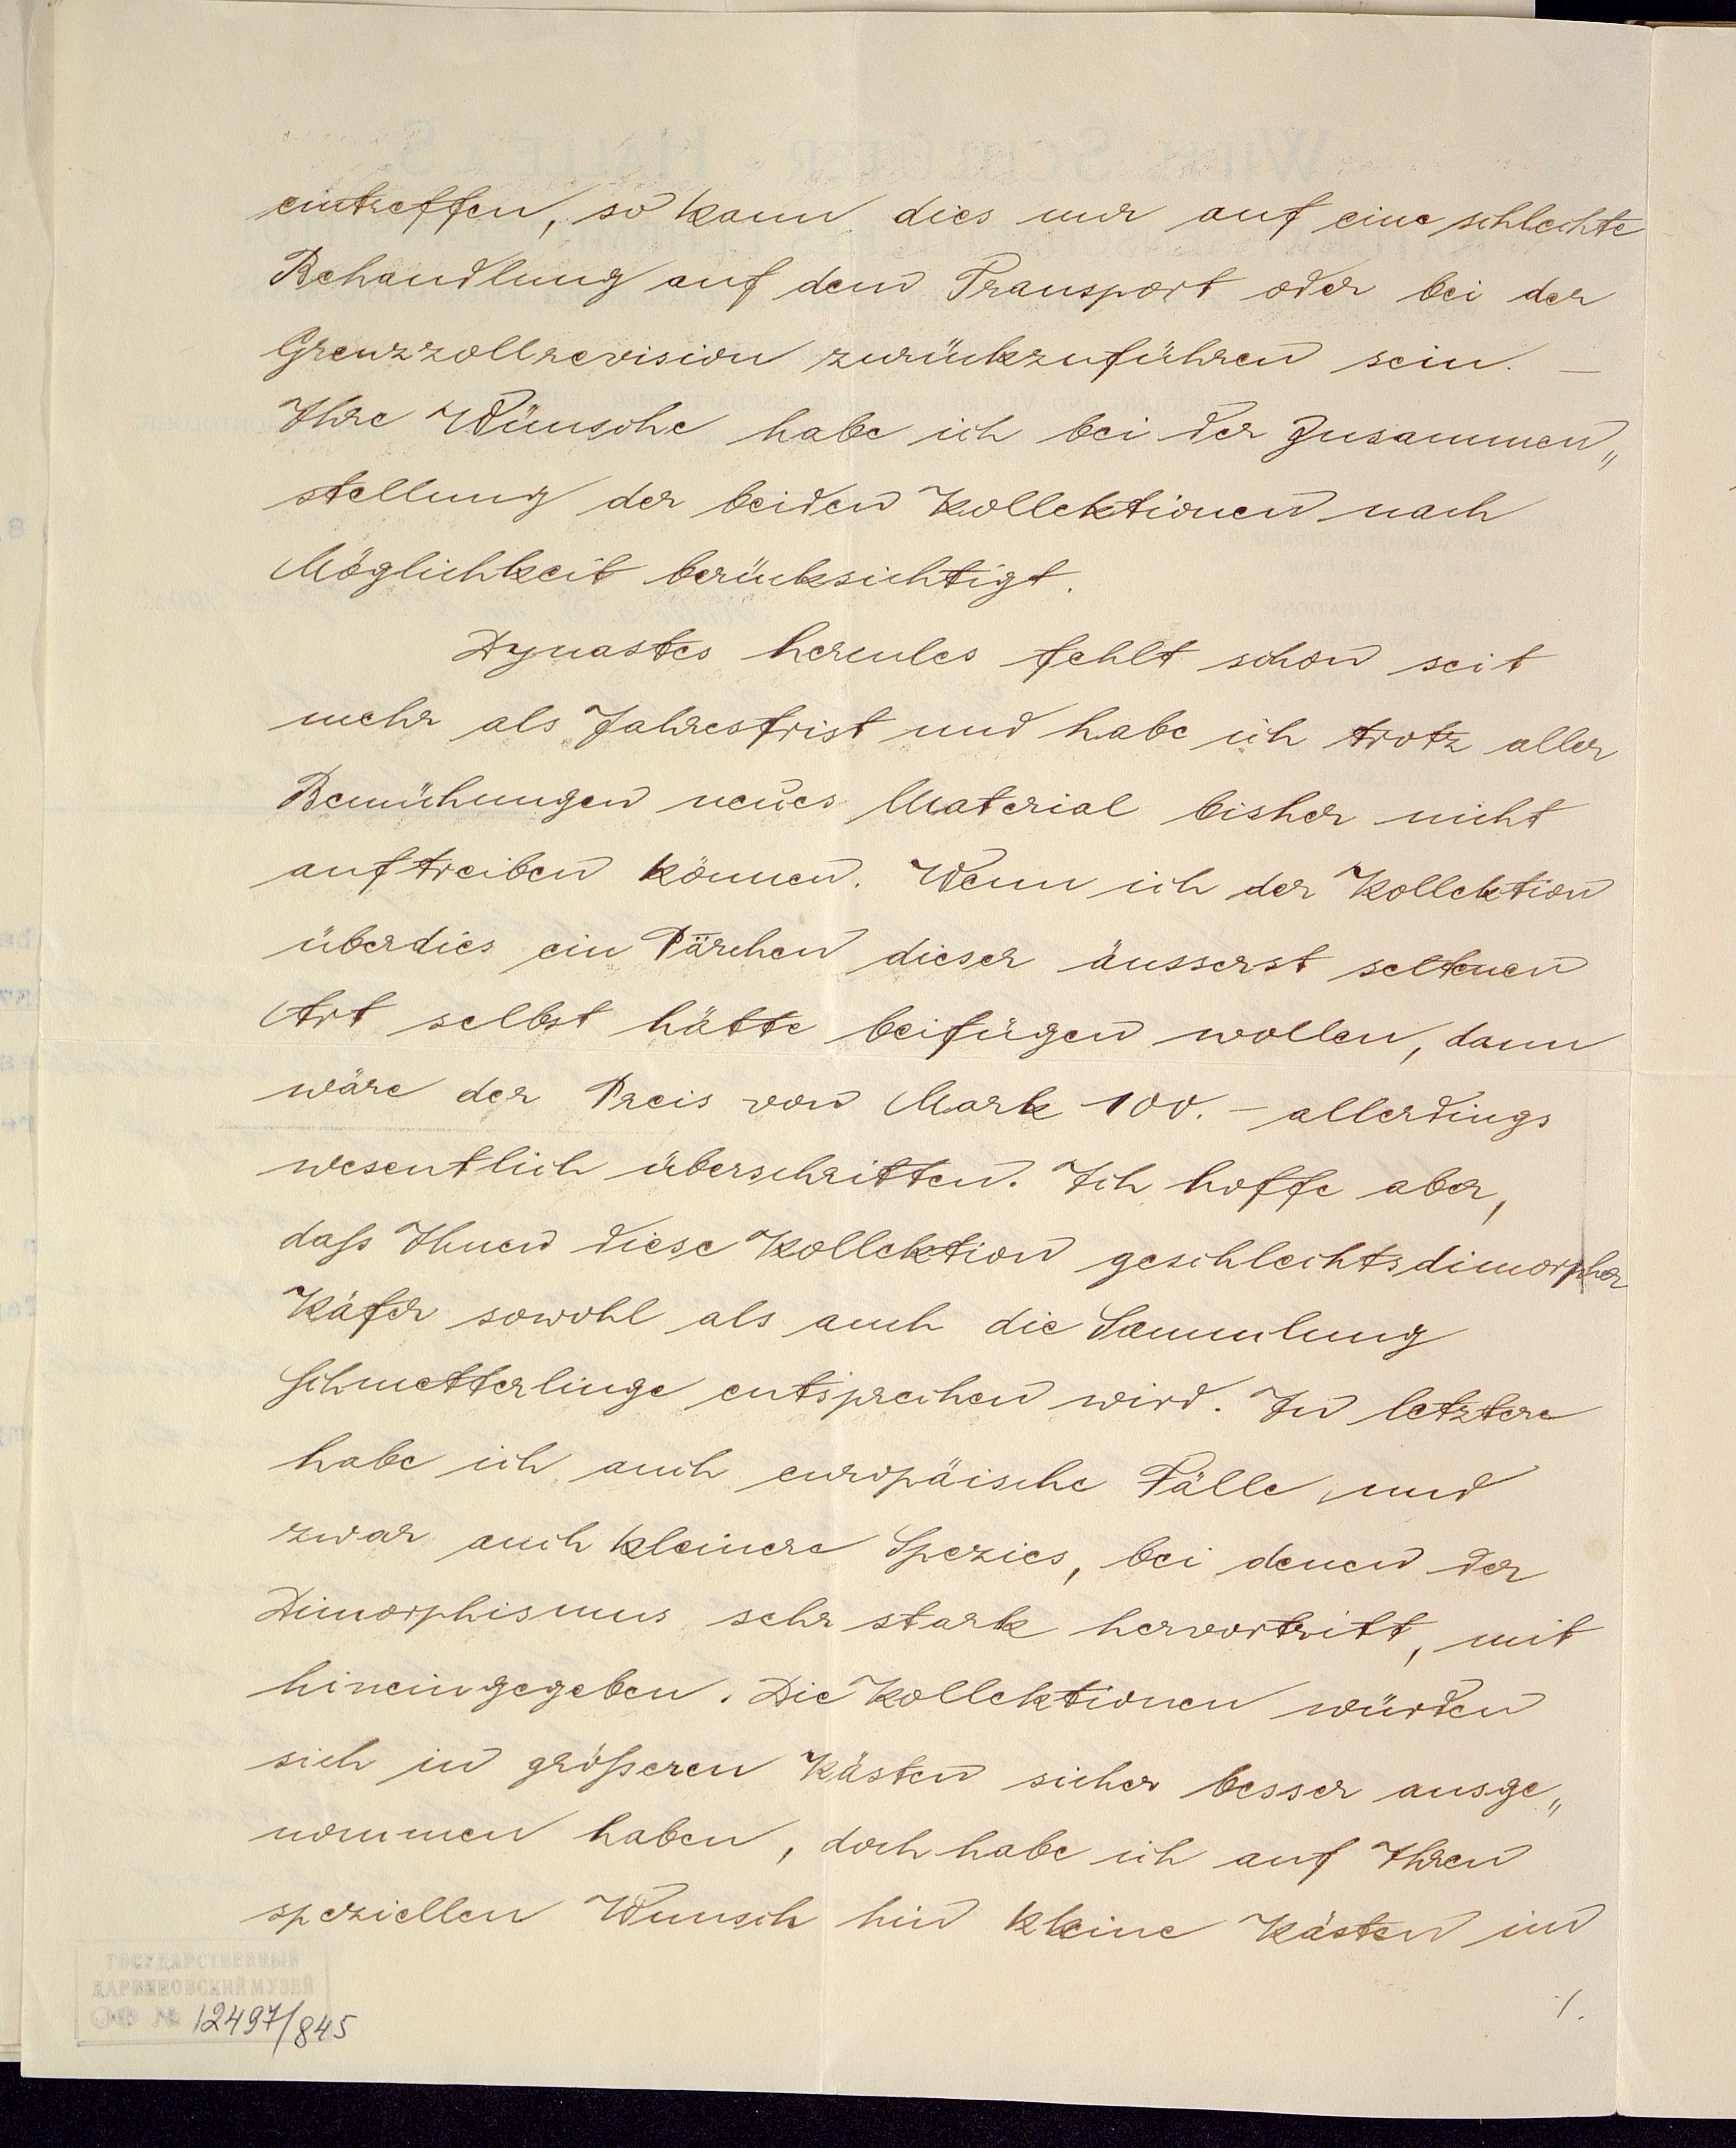 eintreffen, so kann dies nur auf eine schlechte
Behandlung auf dem Transport oder bei der
Grenzzollrevision zurückzuführen sein. —
Ihre Wünsche habe ich bei der Zusammen„
stellung der beiden Kollektionen nach
Möglichkeit berücksichtigt.
Dynastes hercules fehlt schon seit
mehr als Jahresfrist und habe ich trotz aller
Bemühungen neues Material bisher nicht
auftreiben können. Wenn ich der Kollektion
überdies ein Pärchen dieser äusserst seltenen
Art selbst hätte beifügen wollen, dann
wäre der Preis von Mark 100.- allerdings
wesentlich überschritten. Ich hoffe aber,
daß Ihnen diese Kollektion geschlechtsdimorpher
Käfer sowohl als auch die Sammlung
Schmetterlinge entsprechen wird. In letztere
habe ich auch europäische Fälle und
zwar auch kleinere Spezies, bei denen der
Dimorphismus sehr stark hervortritt, mit
hineingegeben. Die Kollektionen würden
sich in größeren Kästen sicher besser ausge„
nommen haben, doch habe ich auf Ihren
speziellen Wunsch hin kleine Kästen in
./.
ГОСУДАРСТВЕННЫЙ
ДАРВИНОВСКИЙ МУЗЕЙ
ОФ № 12497/845